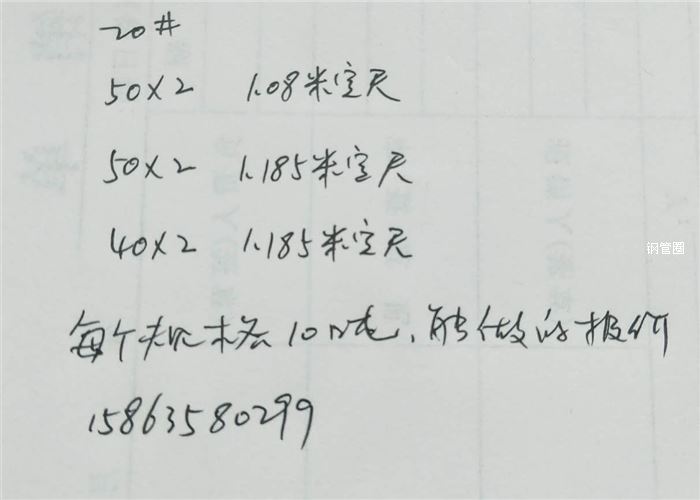 20#
50×2 1.08米定尺
50×2 1.185米定尺
40×2 1.185米定尺
钢管圈
每个规格10吨,能做的报价
15863580299